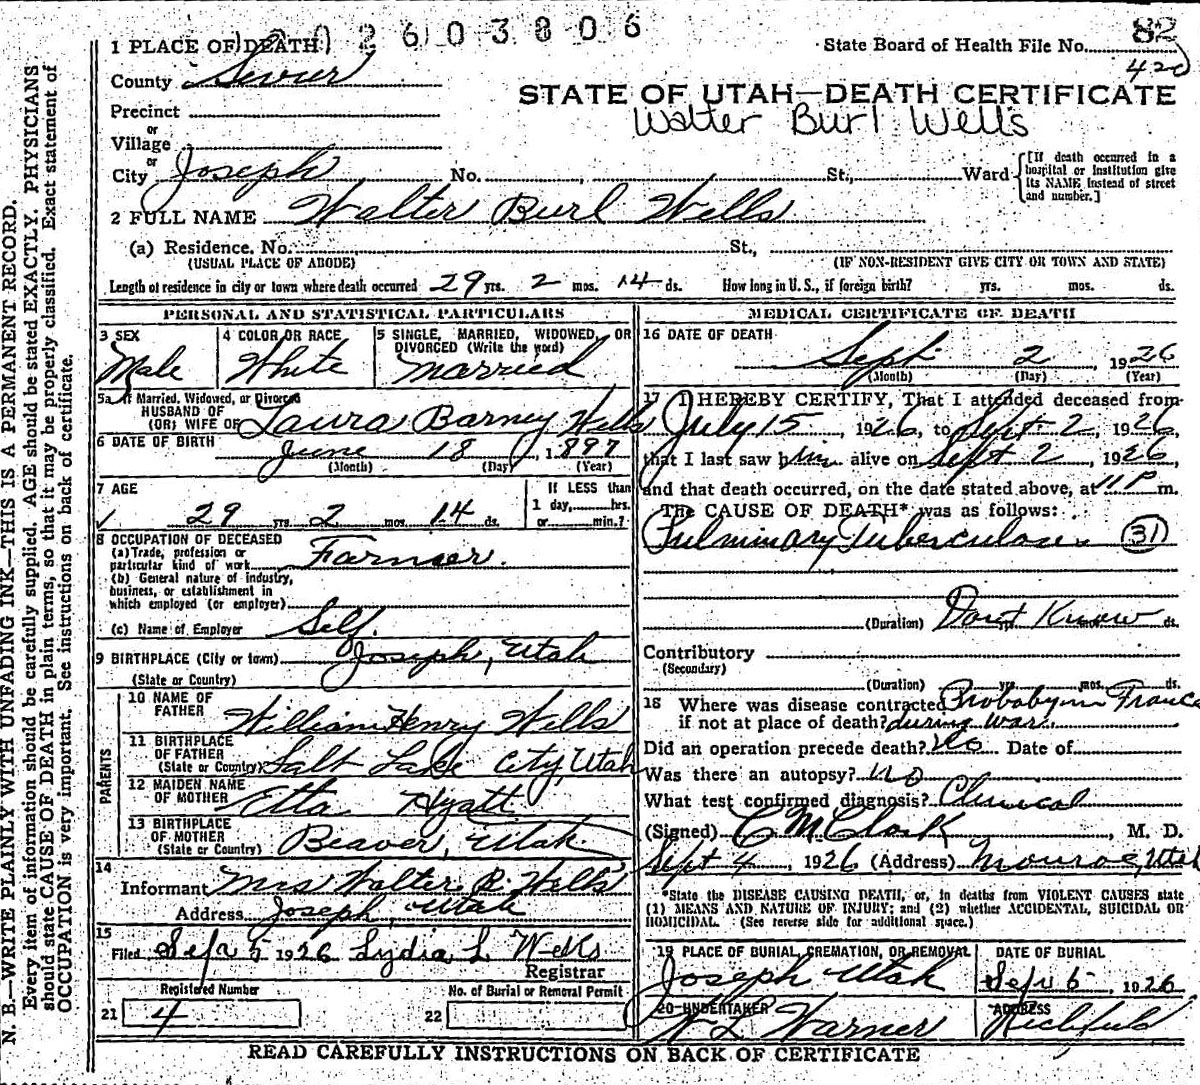 2603806
82
1 PLACE OF DEATH
State Board of Health File No.
420
County Sevier
STATE OF UTAH—DEATH CERTIFICATE
Precinct
Walter Burl Wells
or
Village
or
City Joseph No. , St., Ward
[If death occurred in a hospital or institution give its NAME instead of street and number.]
2 FULL NAME Walter Burl Wells
(a) Residence, No. St.,
(USUAL PLACE OF ABODE) (IF NON-RESIDENT GIVE CITY OR TOWN AND STATE)
Length of residence in city or town where death occurred 29 yrs. 2 mos. 14 ds. How long in U. S., if foreign birth? yrs. mos. ds.
PERSONAL AND STATISTICAL PARTICULARS
3 SEX
Male
4 COLOR OR RACE
White
5 SINGLE, MARRIED, WIDOWED, OR
DIVORCED (Write the word)
Married
5a If Married, Widowed, or Divorced
HUSBAND OF
(OR) WIFE OF Laura Barney Wells
6 DATE OF BIRTH
June 18, 1897
(Month) (Day) (Year)
7 AGE
29 yrs. 2 mos. 14 ds.
If LESS than
1 day, hrs.
or min.?
8 OCCUPATION OF DECEASED
(a) Trade, profession or
particular kind of work Farmer.
(b) General nature of industry,
business, or establishment in
which employed (or employer)
(c) Name of Employer Self.
9 BIRTHPLACE (City or town) Joseph, Utah
(State or Country)
PARENTS
10 NAME OF
FATHER William Henry Wells
11 BIRTHPLACE
OF FATHER
(State or Country) Salt Lake City, Utah
12 MAIDEN NAME
OF MOTHER Etta Hyatt
13 BIRTHPLACE
OF MOTHER
(State or Country) Beaver, Utah
14
Informant Mrs Walter B. Wells
Address Joseph, Utah
15
Filed Sept 5 1926 Lydia L Wells
Registrar
Registered Number
21 4
No. of Burial or Removal Permit
22
MEDICAL CERTIFICATE OF DEATH
16 DATE OF DEATH
Sept 2 1926
(Month) (Day) (Year)
17 I HEREBY CERTIFY, That I attended deceased from
July 15, 1926, to Sept 2, 1926,
that I last saw him alive on Sept 2, 1926,
and that death occurred, on the date stated above, at 11 P m.
The CAUSE OF DEATH* was as follows:
Pulminary Tuberculosis 31
(Duration) Dont Know ds.
Contributory
(Secondary)
(Duration) yrs. mos. ds.
18 Where was disease contracted Probaby in France
if not at place of death? during war.
Did an operation precede death? No Date of
Was there an autopsy? no
What test confirmed diagnosis? Clinical
(Signed) C M Clark, M. D.
Sept 4, 1926 (Address) Monroe, Utah
*State the DISEASE CAUSING DEATH, or, in deaths from VIOLENT CAUSES state
(1) MEANS AND NATURE OF INJURY; and (2) whether ACCIDENTAL, SUICIDAL OR
HOMICIDAL. (See reverse side for additional space.)
19 PLACE OF BURIAL, CREMATION, OR REMOVAL
Joseph Utah
DATE OF BURIAL
Sept 5, 1926
20 UNDERTAKER
N L Warner
ADDRESS
Richfield
READ CAREFULLY INSTRUCTIONS ON BACK OF CERTIFICATE
N. B.—WRITE PLAINLY WITH UNFADING INK—THIS IS A PERMANENT RECORD.
Every item of information should be carefully supplied. AGE should be stated EXACTLY. PHYSICIANS
should state CAUSE OF DEATH in plain terms, so that it may be properly classified. Exact statement of
OCCUPATION is very important. See instructions on back of certificate.